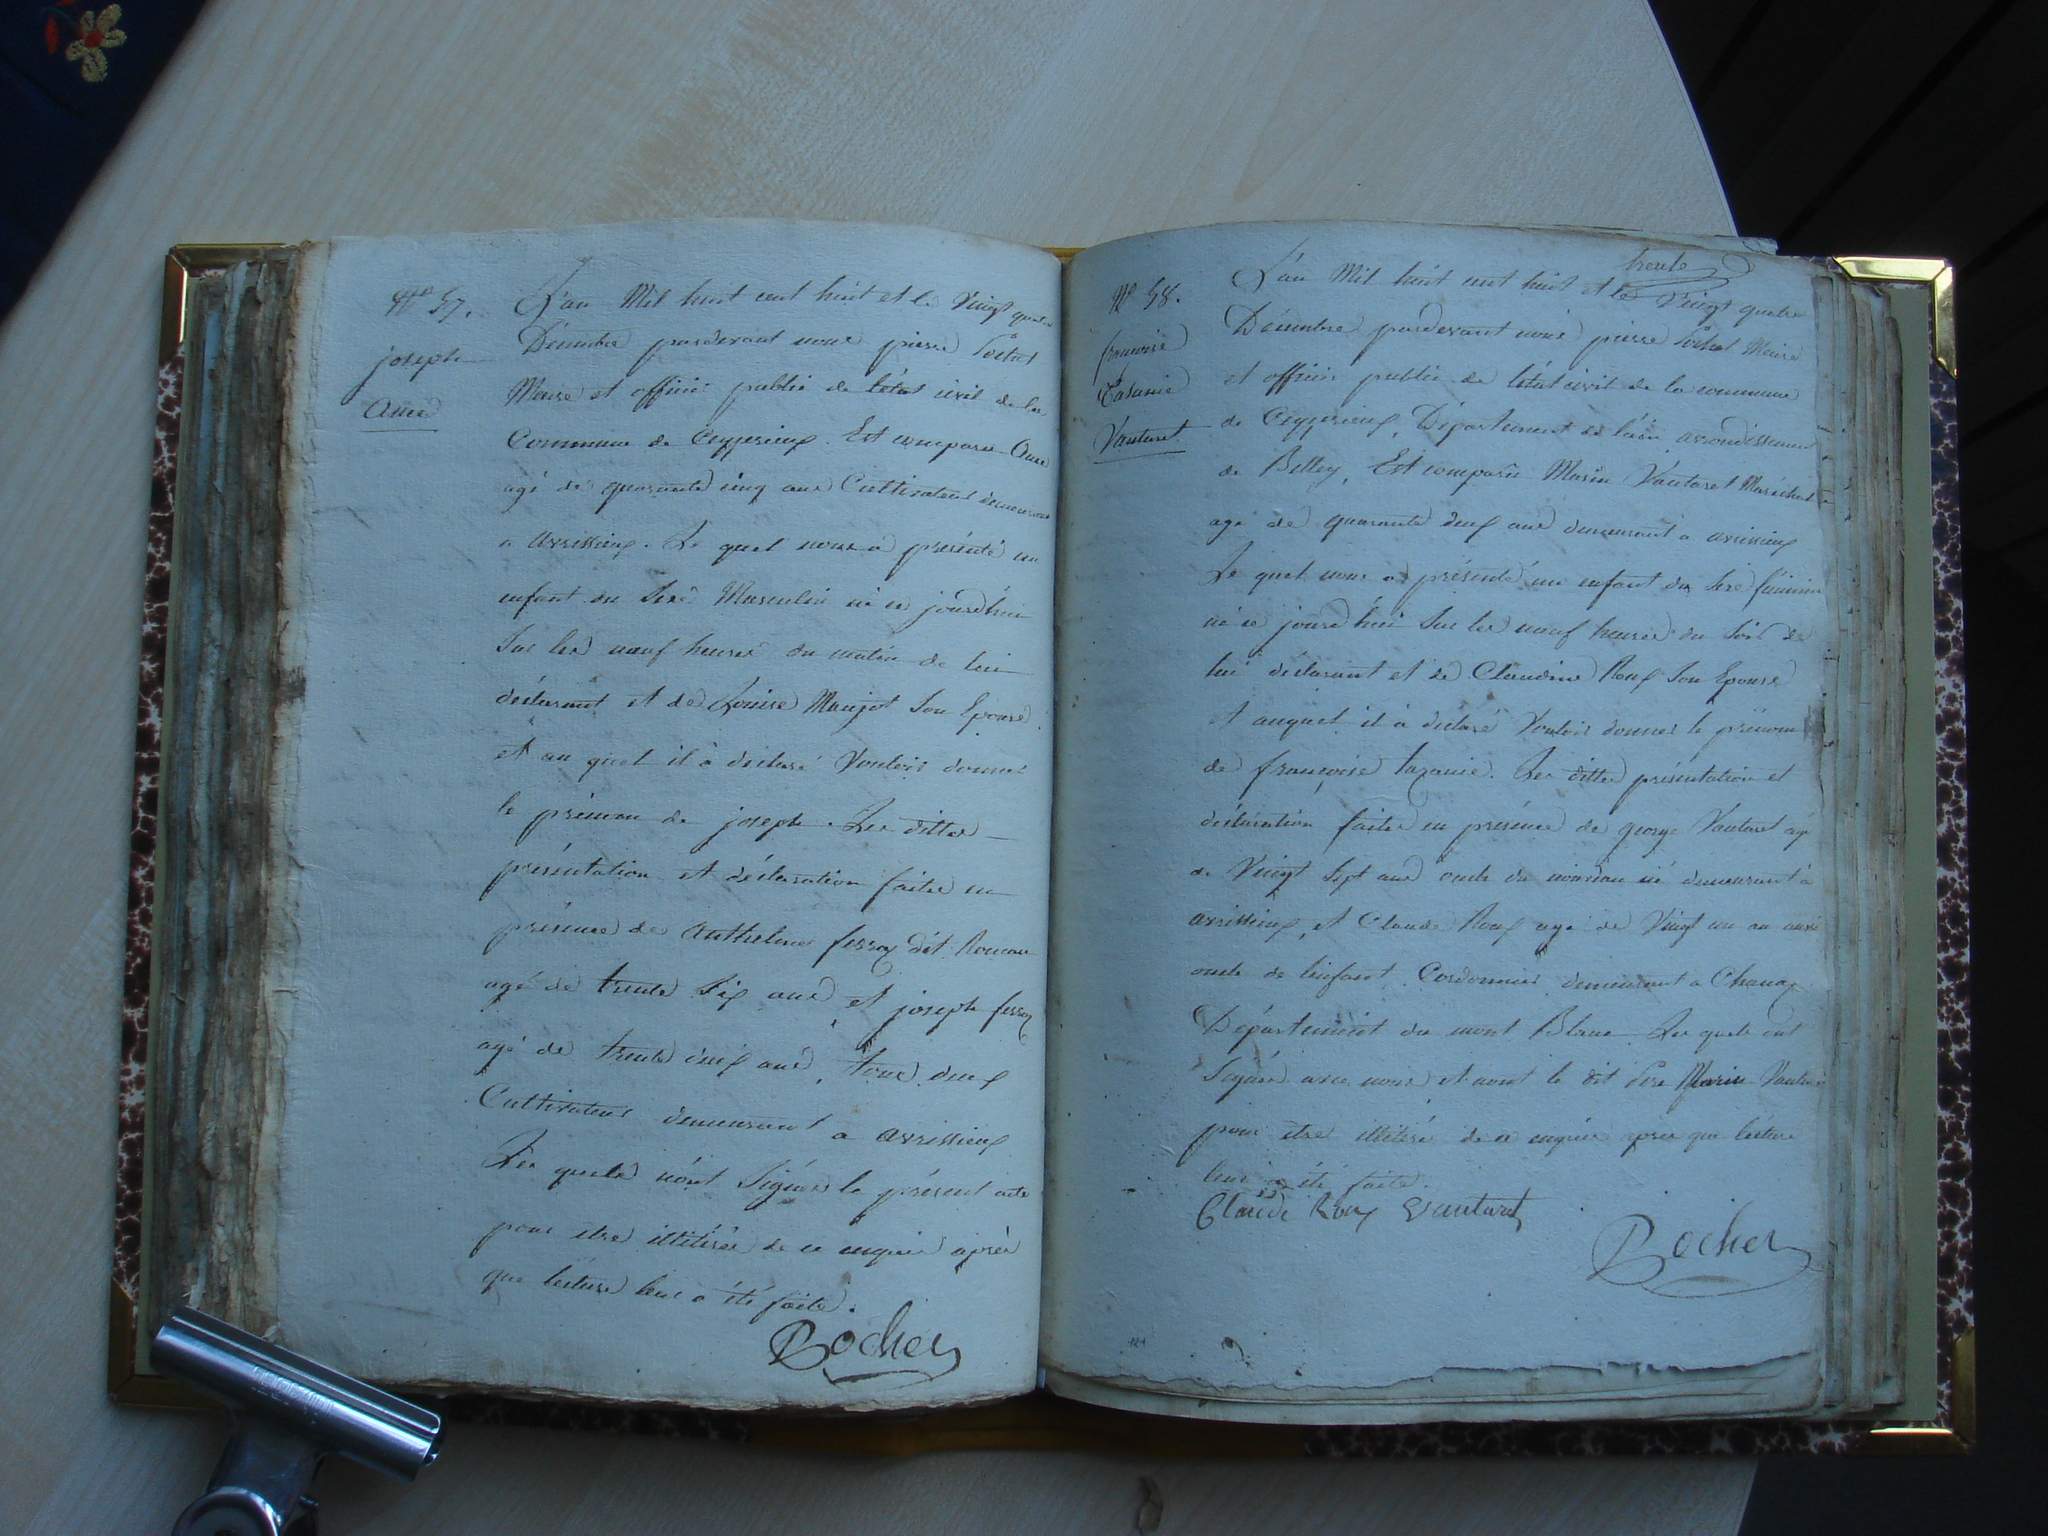 N° 57.
joseph
Ame
L'an Mil huit cent huit et le Vingt quatre
Décembre pardevant nous pierre Bochet
Maire et officier public de l'état civil de la
Commune de Ceyzerieux. Est comparu Ame
agé de quarante cinq ans Cultivateur demeurant
a avrissieux. Le quel nous a présenté un
enfant du Sexe Masculin né ce jourd'hui
Sur les neuf heures du matin de lui
déclarant et de Louise Maujot Son Epouse
et au quel il à déclaré Vouloir donner
le prénom de joseph. Les dittes
présentation et déclaration faites en
présence de Anthelme ferroy dit
agé de trente Six ans et joseph ferroy
agé de trente cinq ans, tous deux
Cultivateurs demeurant a avrissieux
Les quels n'ont Signés le présent acte
pour etre illitirés de ce enquis après
que lecture leur a été faite.
Bochet
trente
N° 58.
francoise
Tasanie
Vautaret
L'an Mil huit cent huit et le Vingt quatre
Décembre pardevant nous pierre Bochet Maire
et officier public de l'état civil de la commune
de Ceyzerieux, Département de l'ain arrondissement
de Belley, Est comparu Marin Vautaret Maréchal
agé de quarante deux ans demeurant a avrissieux
Le quel nous a présenté un enfant du Sexe féminin
né ce jourd'hui Sur les neuf heures du Soir de
lui déclarant et de Claudine Roux Son Epouse
et auquel il à déclaré Vouloir donner le prénom
de françoise tazanie. Les dittes présentation et
déclaration faites en présence de george Vautaret agé
de Vingt Sept ans oncle du nouveau né demeurant à
avrissieux, et Claude Roux agé de Vingt un an aussi
oncle de l'enfant, Cordonnier demeurant a Chanaz
Département du mont Blanc. Les quels ont
Signés avec nous et nont le dit Pere Marin Vautaret
pour etre illitiré de ce enquis apres que lecture
leur a été faite.
Claude Roux gVautaret
Bochet